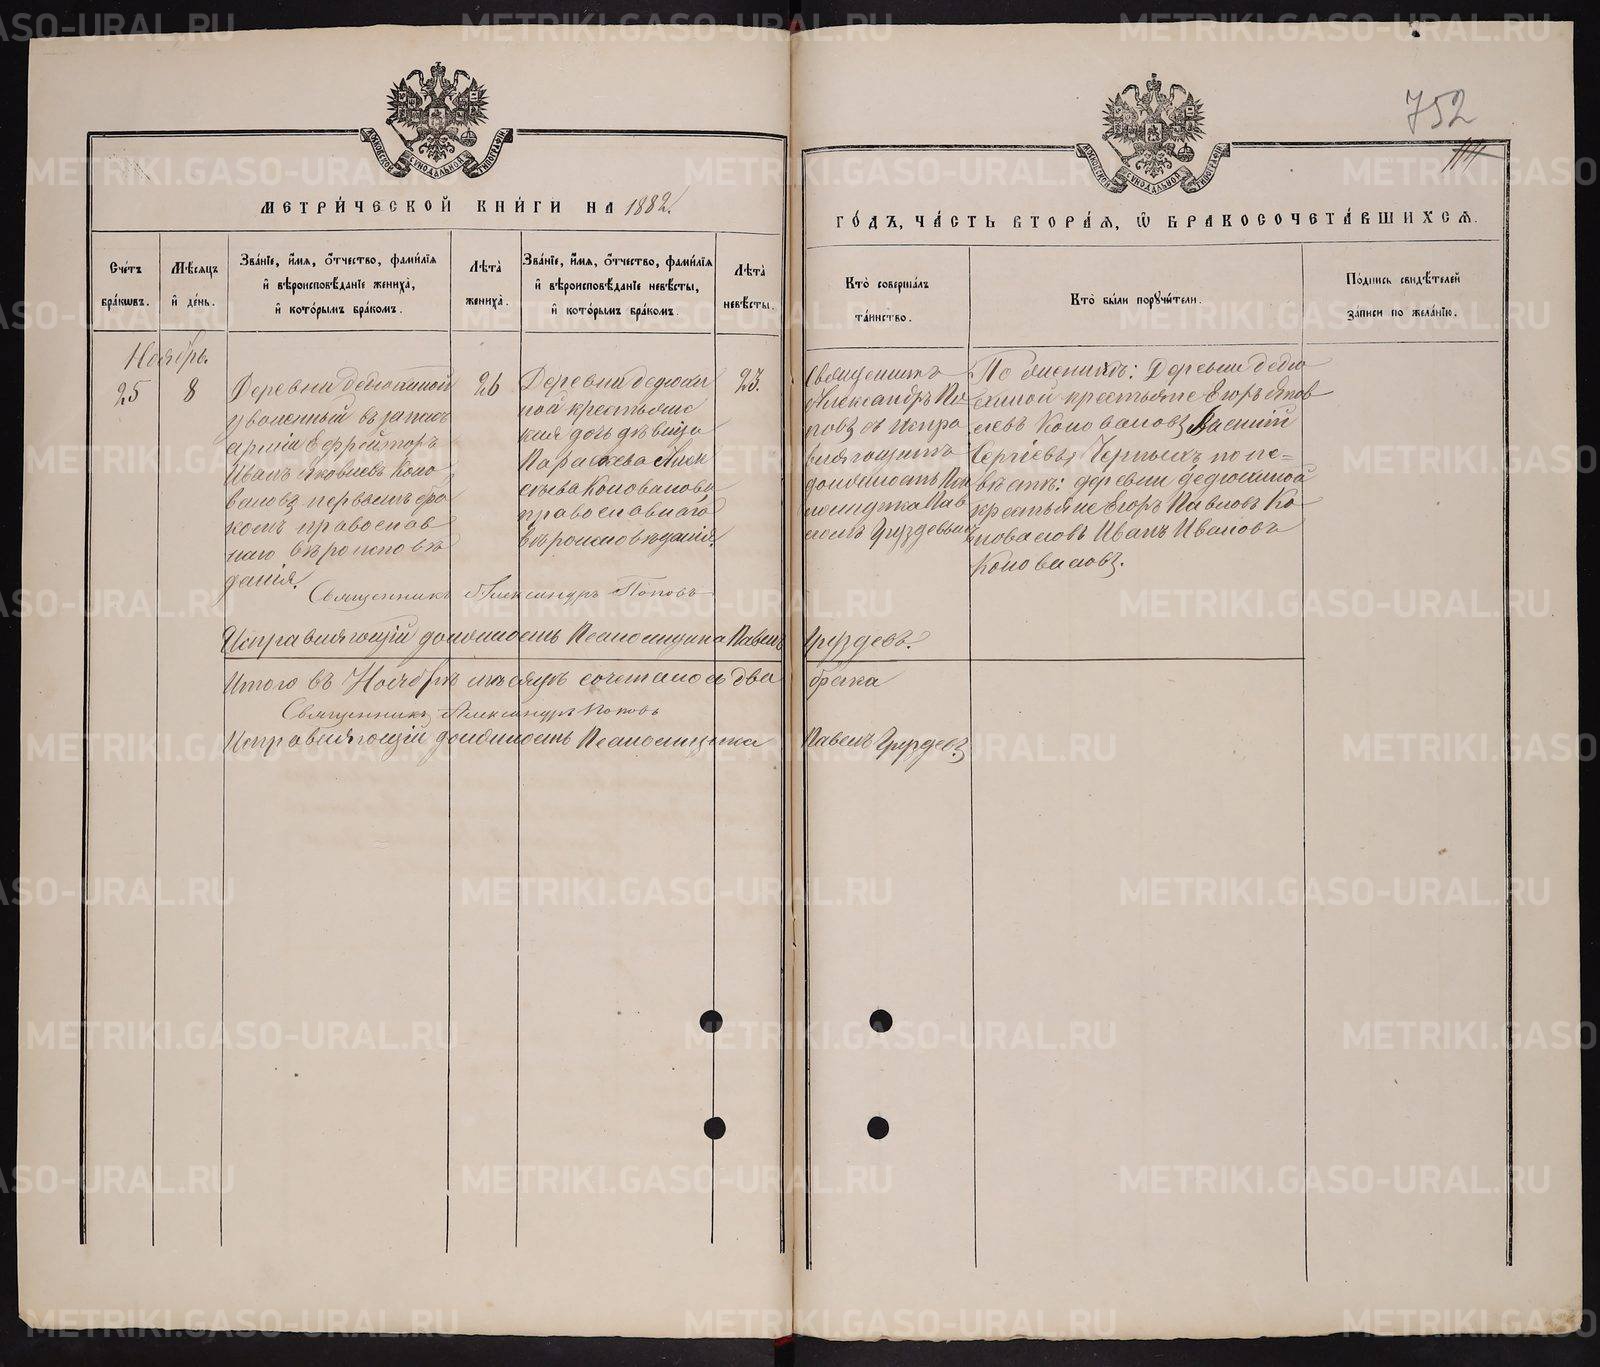 752
МЕТРИ́ЧЕСКОЙ КНИ́ГИ НА 1882.
ГО́ДЪ, ЧА́СТЬ ВТОРА́Я, Ѡ БРАКОСОЧЕТА́ВШИХСЯ.
Сче́тъ бра́кѡвъ.
Мѣ́сяцъ и де́нь.
Зва́нїе, и́мя, о́тчество, фами́лїя и вѣроисповѣ́данїе жениха̀, и кото́рымъ бра́комъ.
Лѣта̀ жениха̀.
Зва́нїе, и́мя, о́тчество, фами́лїя и вѣроисповѣ́данїе невѣ́сты, и кото́рымъ бра́комъ.
Лѣта̀ невѣ́сты.
Кто̀ соверша́лъ та́инство.
Кто̀ бы́ли порꙋчи́тели.
По́дпись свидѣ́телей за́писи по жела́нїю.
Ноябрь.
25
8
Деревни Дедюхиной
уволенный въ запасъ
арміи Ефрейторъ
Иванъ Яковлевъ Коно
валовъ первымъ бра
комъ православ
наго вѣроисповѣ
данія.
26
Деревни Дедюхи
ной крестьянс
кая дочь дѣвица
Параскева Алек
сѣева Коновалова
православнаго
вѣроисповѣданія.
23.
Священникъ
Александръ По
повъ съ Испра
вляющимъ
должность Пса
ломщика Пав
ломъ Груздевымъ
По женихѣ: Деревни Дедю
хиной крестьяне Егоръ Яков
левъ Коноваловъ Василій
Сергіевъ Черныхъ по не=
вѣстѣ: деревни Дедюхиной
крестьяне Егоръ Павловъ Ко
новаловъ Иванъ Ивановъ
Коноваловъ.
Священникъ Александръ Поповъ
Исправляющій должность Псаломщика Павелъ Груздевъ.
Итого въ Ноябрѣ мѣсяцѣ сочеталось два брака
Священникъ Александръ Поповъ
Исправляющій должность Псаломщика Павелъ Груздевъ